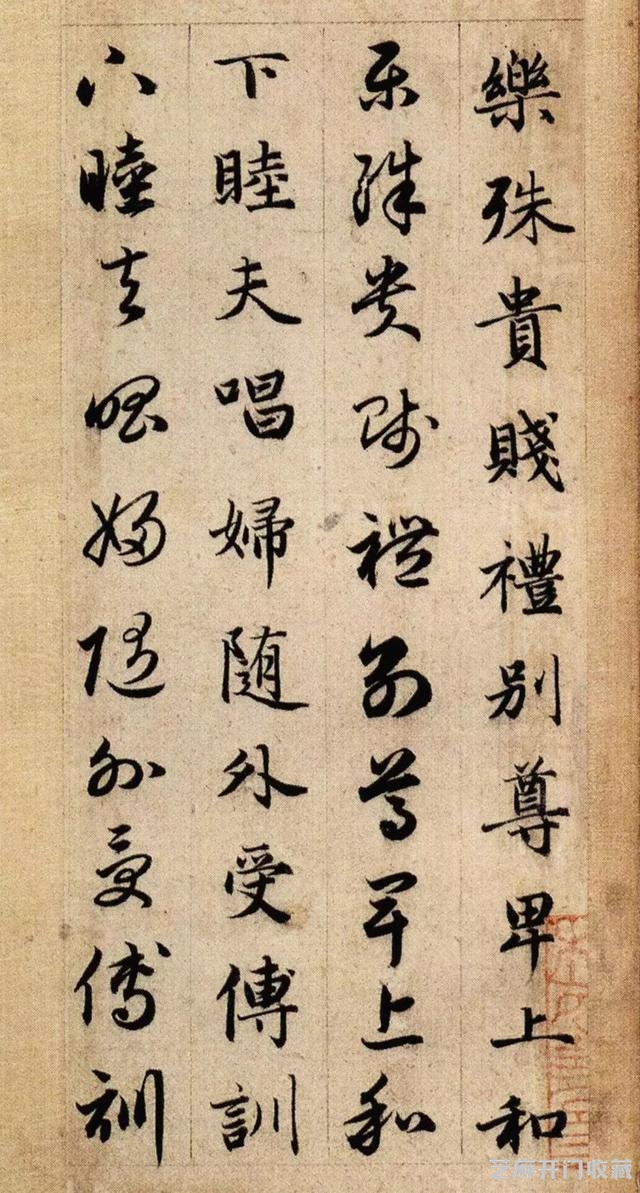 樂殊貴賤禮別尊卑上和
樂殊貴賤禮別尊卑上和
下睦夫唱婦随外受傅訓
下睦夫唱婦随外受傅訓